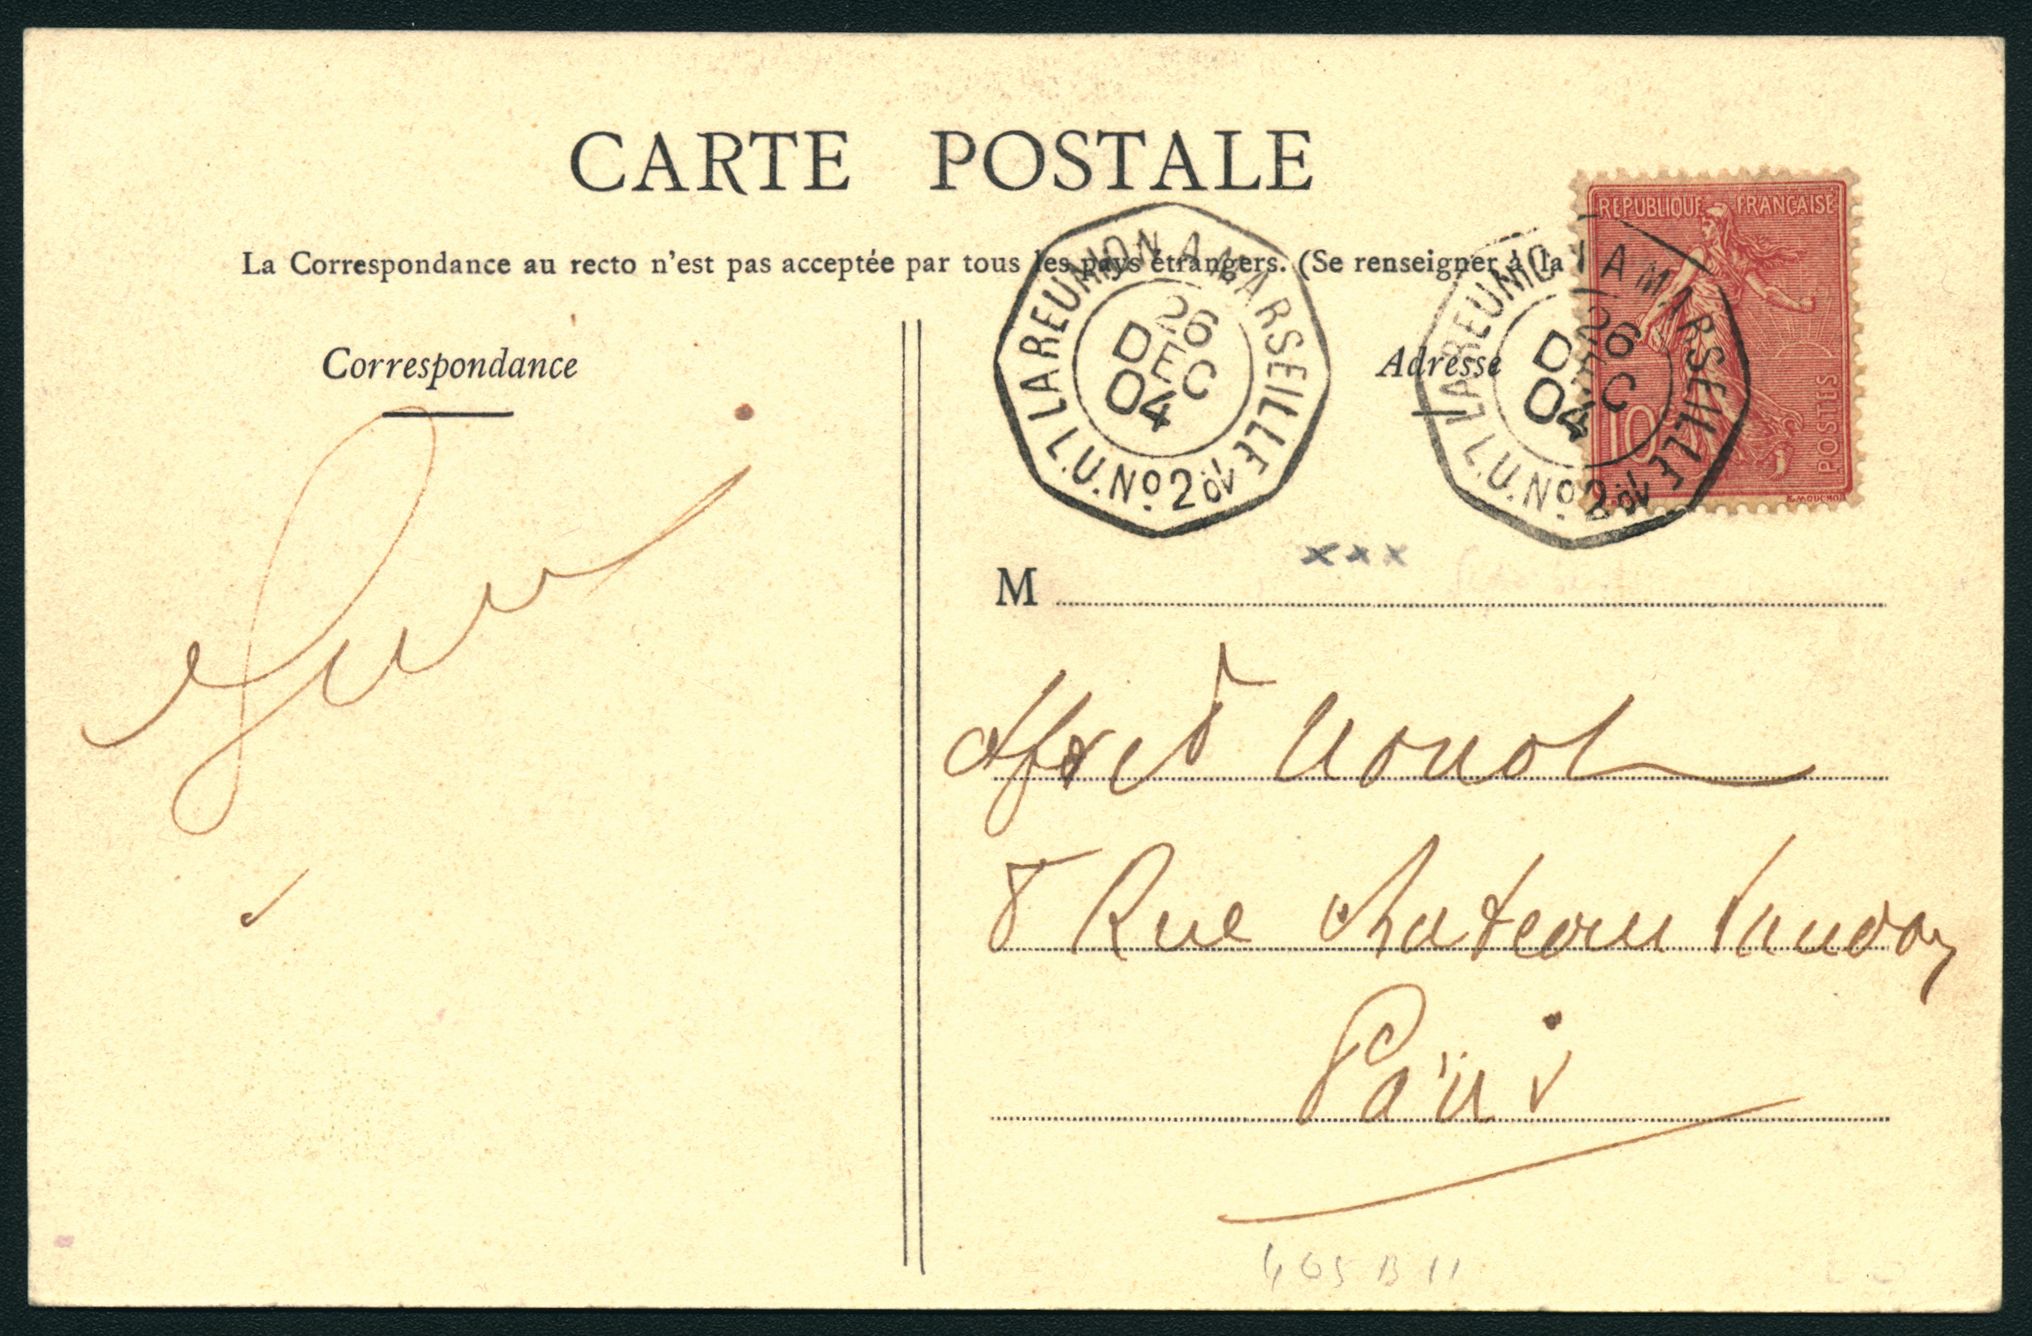 CARTE POSTALE
La Correspondance au recto n'est pas acceptée par tous les pays étrangers. (Se renseigner à la
REPUBLIQUE FRANÇAISE
10
POSTES
E. MOUCHON
LA REUNION A MARSEILLE
26
DEC
04
L.U. No 2
LA REUNION A MARSEILLE
26
DEC
04
L.U. No 2
Correspondance
Adresse
xxx
M
Alfred
8 Rue Chateau Landon
Paris
465 B 11